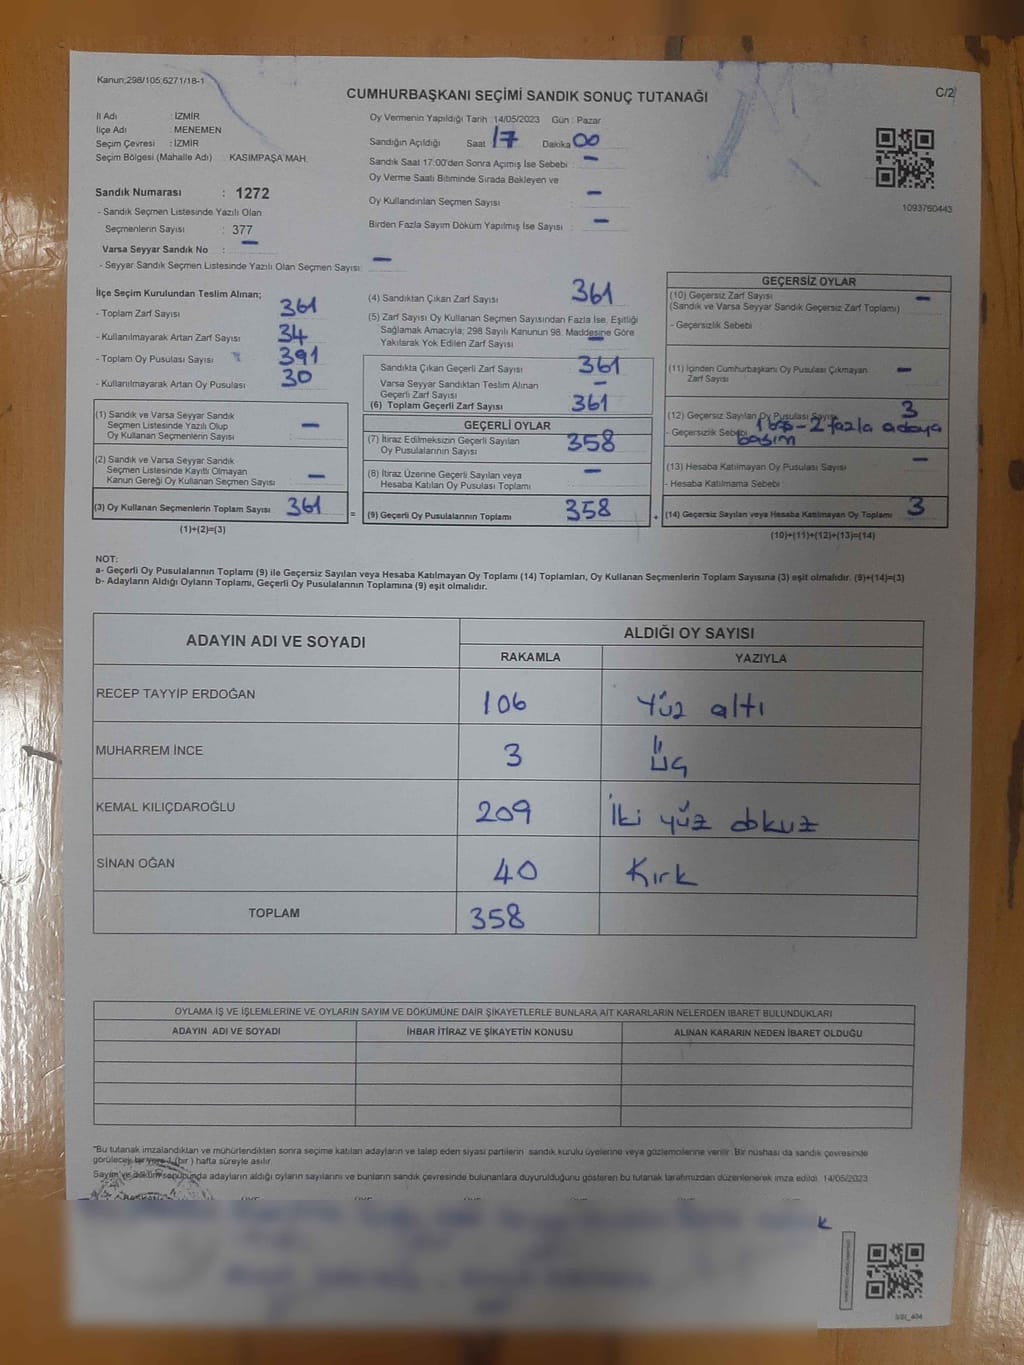 Kanun;298/105;6271/18-1
CUMHURBAŞKANI SEÇİMİ SANDIK SONUÇ TUTANAĞI
C/2
İl Adı : İZMİR
İlçe Adı : MENEMEN
Seçim Çevresi : İZMİR
Seçim Bölgesi (Mahalle Adı) : KASIMPAŞA MAH.
Sandık Numarası : 1272
- Sandık Seçmen Listesinde Yazılı Olan
Seçmenlerin Sayısı : 377
Varsa Seyyar Sandık No : —
- Seyyar Sandık Seçmen Listesinde Yazılı Olan Seçmen Sayısı: —
Oy Vermenin Yapıldığı Tarih :14/05/2023 Gün : Pazar
Sandığın Açıldığı Saat 17 Dakika 00
Sandık Saat 17:00'den Sonra Açımış İse Sebebi : —
Oy Verme Saati Bitiminde Sırada Bekleyen ve
Oy Kullandırılan Seçmen Sayısı : —
Birden Fazla Sayım Döküm Yapılmış İse Sayısı : —
1093760443
İlçe Seçim Kurulundan Teslim Alınan;
- Toplam Zarf Sayısı : 361
- Kullanılmayarak Artan Zarf Sayısı : 34
- Toplam Oy Pusulası Sayısı : 391
- Kullanılmayarak Artan Oy Pusulası : 30
(1) Sandık ve Varsa Seyyar Sandık
Seçmen Listesinde Yazılı Olup
Oy Kullanan Seçmenlerin Sayısı : —
(2) Sandık ve Varsa Seyyar Sandık
Seçmen Listesinde Kayıtlı Olmayan
Kanun Gereği Oy Kullanan Seçmen Sayısı : —
(3) Oy Kullanan Seçmenlerin Toplam Sayısı : 361
(1)+(2)=(3)
=
(4) Sandıktan Çıkan Zarf Sayısı : 361
(5) Zarf Sayısı Oy Kullanan Seçmen Sayısından Fazla İse, Eşitliği
Sağlamak Amacıyla; 298 Sayılı Kanunun 98. Maddesine Göre
Yakılarak Yok Edilen Zarf Sayısı : —
Sandıkta Çıkan Geçerli Zarf Sayısı : 361
Varsa Seyyar Sandıktan Teslim Alınan
Geçerli Zarf Sayısı : —
(6) Toplam Geçerli Zarf Sayısı : 361
GEÇERLİ OYLAR
(7) İtiraz Edilmeksizin Geçerli Sayılan
Oy Pusulalarının Sayısı : 358
(8) İtiraz Üzerine Geçerli Sayılan veya
Hesaba Katılan Oy Pusulası Toplamı : —
(9) Geçerli Oy Pusulalarının Toplamı : 358
+
GEÇERSİZ OYLAR
(10) Geçersiz Zarf Sayısı : —
(Sandık ve Varsa Seyyar Sandık Geçersiz Zarf Toplamı)
- Geçersizlik Sebebi :
(11) İçinden Cumhurbaşkanı Oy Pusulası Çıkmayan
Zarf Sayısı : —
(12) Geçersiz Sayılan Oy Pusulası Sayısı : 3
- Geçersizlik Sebebi 1 boş-2 fazla adaya
basım
(13) Hesaba Katılmayan Oy Pusulası Sayısı : —
- Hesaba Katılmama Sebebi :
(14) Geçersiz Sayılan veya Hesaba Katılmayan Oy Toplamı : 3
(10)+(11)+(12)+(13)=(14)
NOT:
a- Geçerli Oy Pusulalarının Toplamı (9) ile Geçersiz Sayılan veya Hesaba Katılmayan Oy Toplamı (14) Toplamları, Oy Kullanan Seçmenlerin Toplam Sayısına (3) eşit olmalıdır. (9)+(14)=(3)
b- Adayların Aldığı Oyların Toplamı, Geçerli Oy Pusulalarının Toplamına (9) eşit olmalıdır.
ADAYIN ADI VE SOYADI ALDIĞI OY SAYISI
RAKAMLA YAZIYLA
RECEP TAYYİP ERDOĞAN 106 Yüz altı
MUHARREM İNCE 3 Üç
KEMAL KILIÇDAROĞLU 209 İki yüz dokuz
SİNAN OĞAN 40 Kırk
TOPLAM 358
OYLAMA İŞ VE İŞLEMLERİNE VE OYLARIN SAYIM VE DÖKÜMÜNE DAİR ŞİKAYETLERLE BUNLARA AİT KARARLARIN NELERDEN İBARET BULUNDUKLARI
ADAYIN ADI VE SOYADI İHBAR İTİRAZ VE ŞİKAYETİN KONUSU ALINAN KARARIN NEDEN İBARET OLDUĞU
"Bu tutanak imzalandıktan ve mühürlendikten sonra seçime katılan adayların ve talep eden siyasi partilerin sandık kurulu üyelerine veya gözlemcilerine verilir. Bir nüshası da sandık çevresinde
görülecek bir yere 1 (bir) hafta süreyle asılır.
Sayım ve döküm sonucunda adayların aldığı oyların sayılarını ve bunların sandık çevresinde bulunanlara duyurulduğunu gösteren bu tutanak tarafımızdan düzenlenerek imza edildi. 14/05/2023